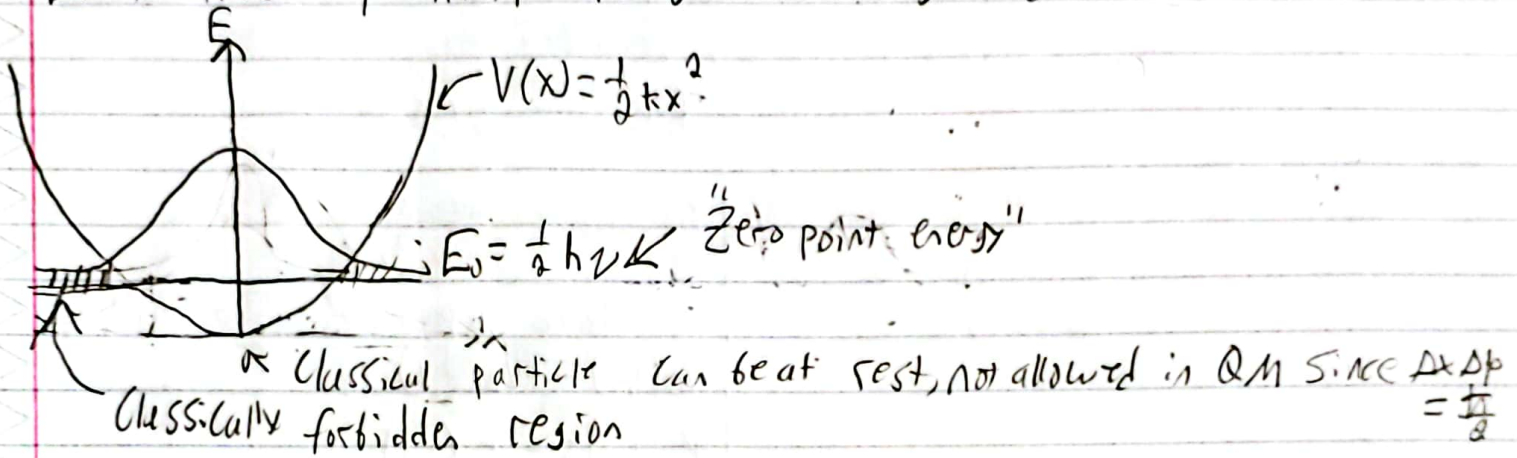 E
V(x) = 1/2 kx²
E₀ = 1/2 hν "Zero point energy"
x
Classical particle can be at rest, not allowed in QM since Δx Δp
= ħ/2
Classically forbidden region